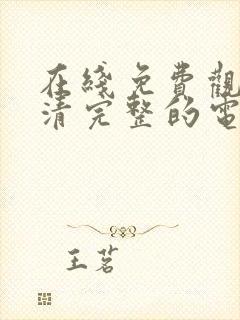 在綫免費觀
清完整的電
王茗